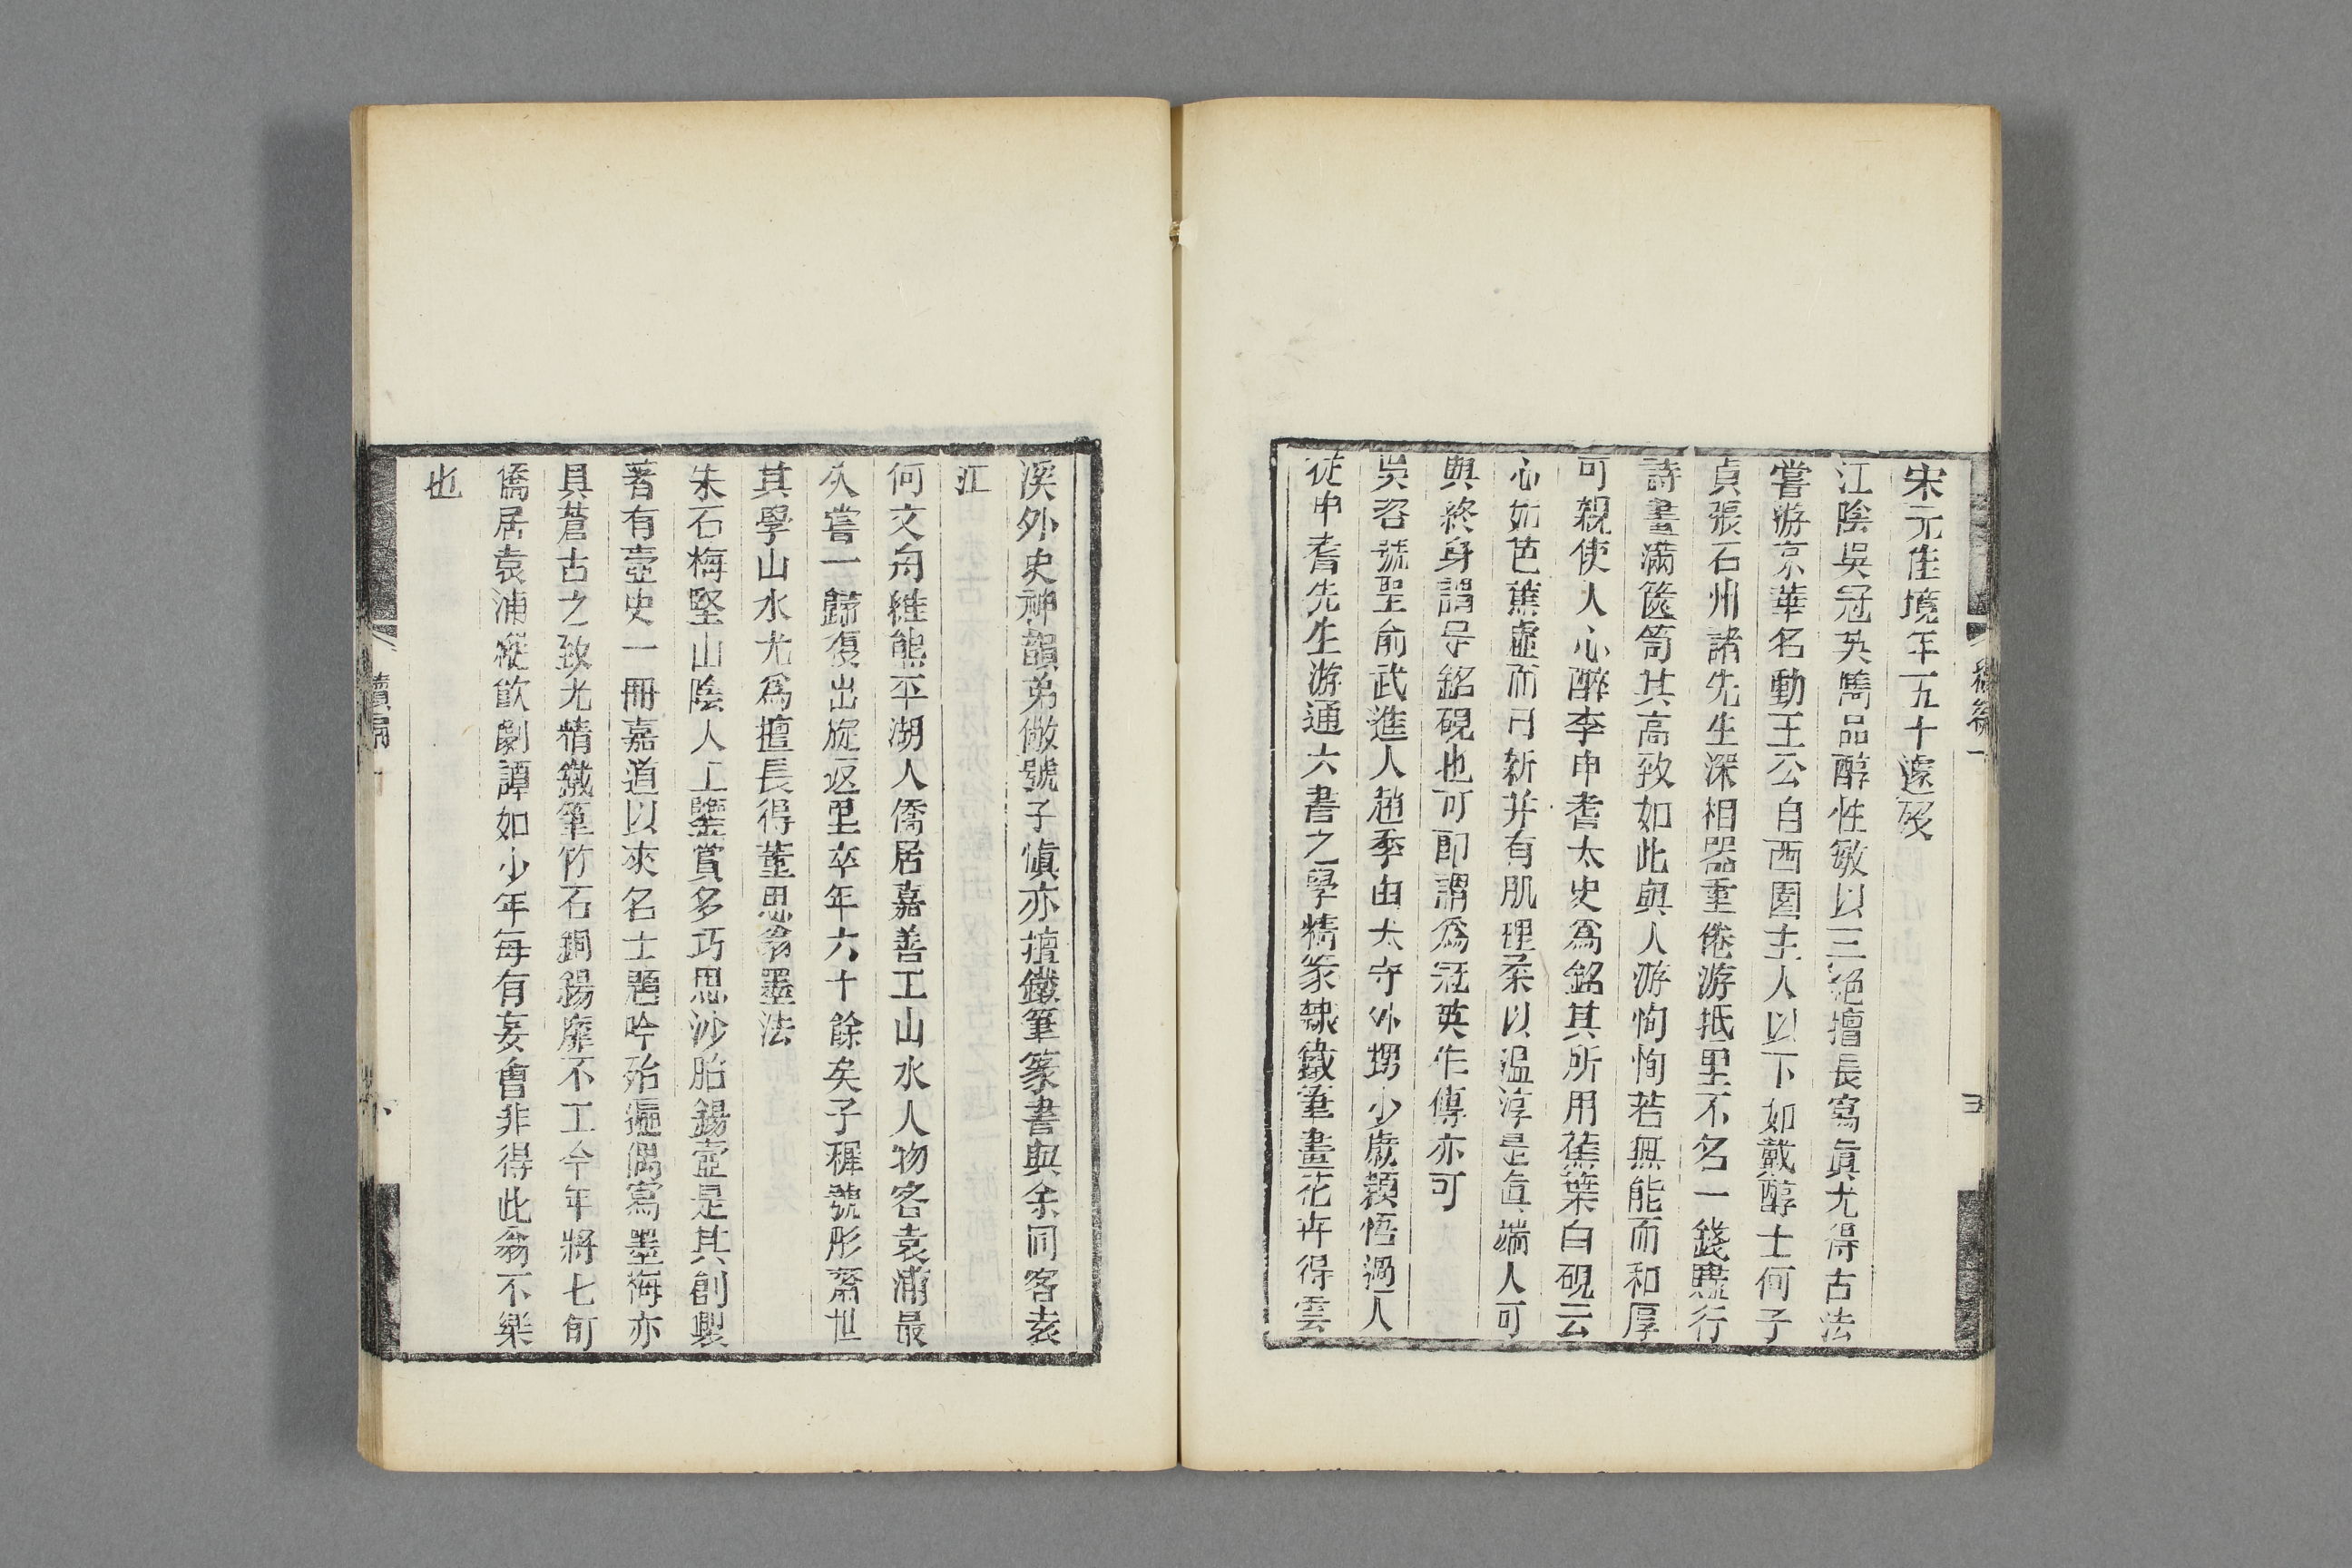 宋元佳境年五十遽歿
江陰吳冠英儁品醇性敏以三絕擅長寫眞尤得古法
嘗游京華名動王公自西園主人以下如戴醇士何子
貞張石州諸先生深相器重倦游抵里不名一錢贐行
詩畫滿篋笥其高致如此與人游恂恂若無能而和厚
可親使人心醉李申耆太史爲銘其所用蕉葉白硯云
心如芭蕉虛而日新并有肌理柔以温淳是眞端人可
與終身謂予銘硯也可卽謂爲冠英作傳亦可
吳咨號聖俞武進人趙季由太守外甥少歲穎悟過人
從申耆先生游通六書之學精篆隸鐵筆畫花卉得雲
溪外史神韻弟儆號子愼亦擅鐵筆篆書與余同客袁
江
何文舟維熊平湖人僑居嘉善工山水人物客袁浦最
久嘗一歸復出旋返里卒年六十餘矣子穉號彤齋世
其學山水尤爲擅長得董思翁墨法
朱石梅堅山陰人工鑒賞多巧思沙胎錫壺是其創製
著有壺史一冊嘉道以來名士題吟殆徧偶寫墨梅亦
具蒼古之致尤精鐵筆竹石銅錫靡不工今年將七旬
僑居袁浦縱飲劇譚如少年每有妄會非得此翁不樂
也
續編